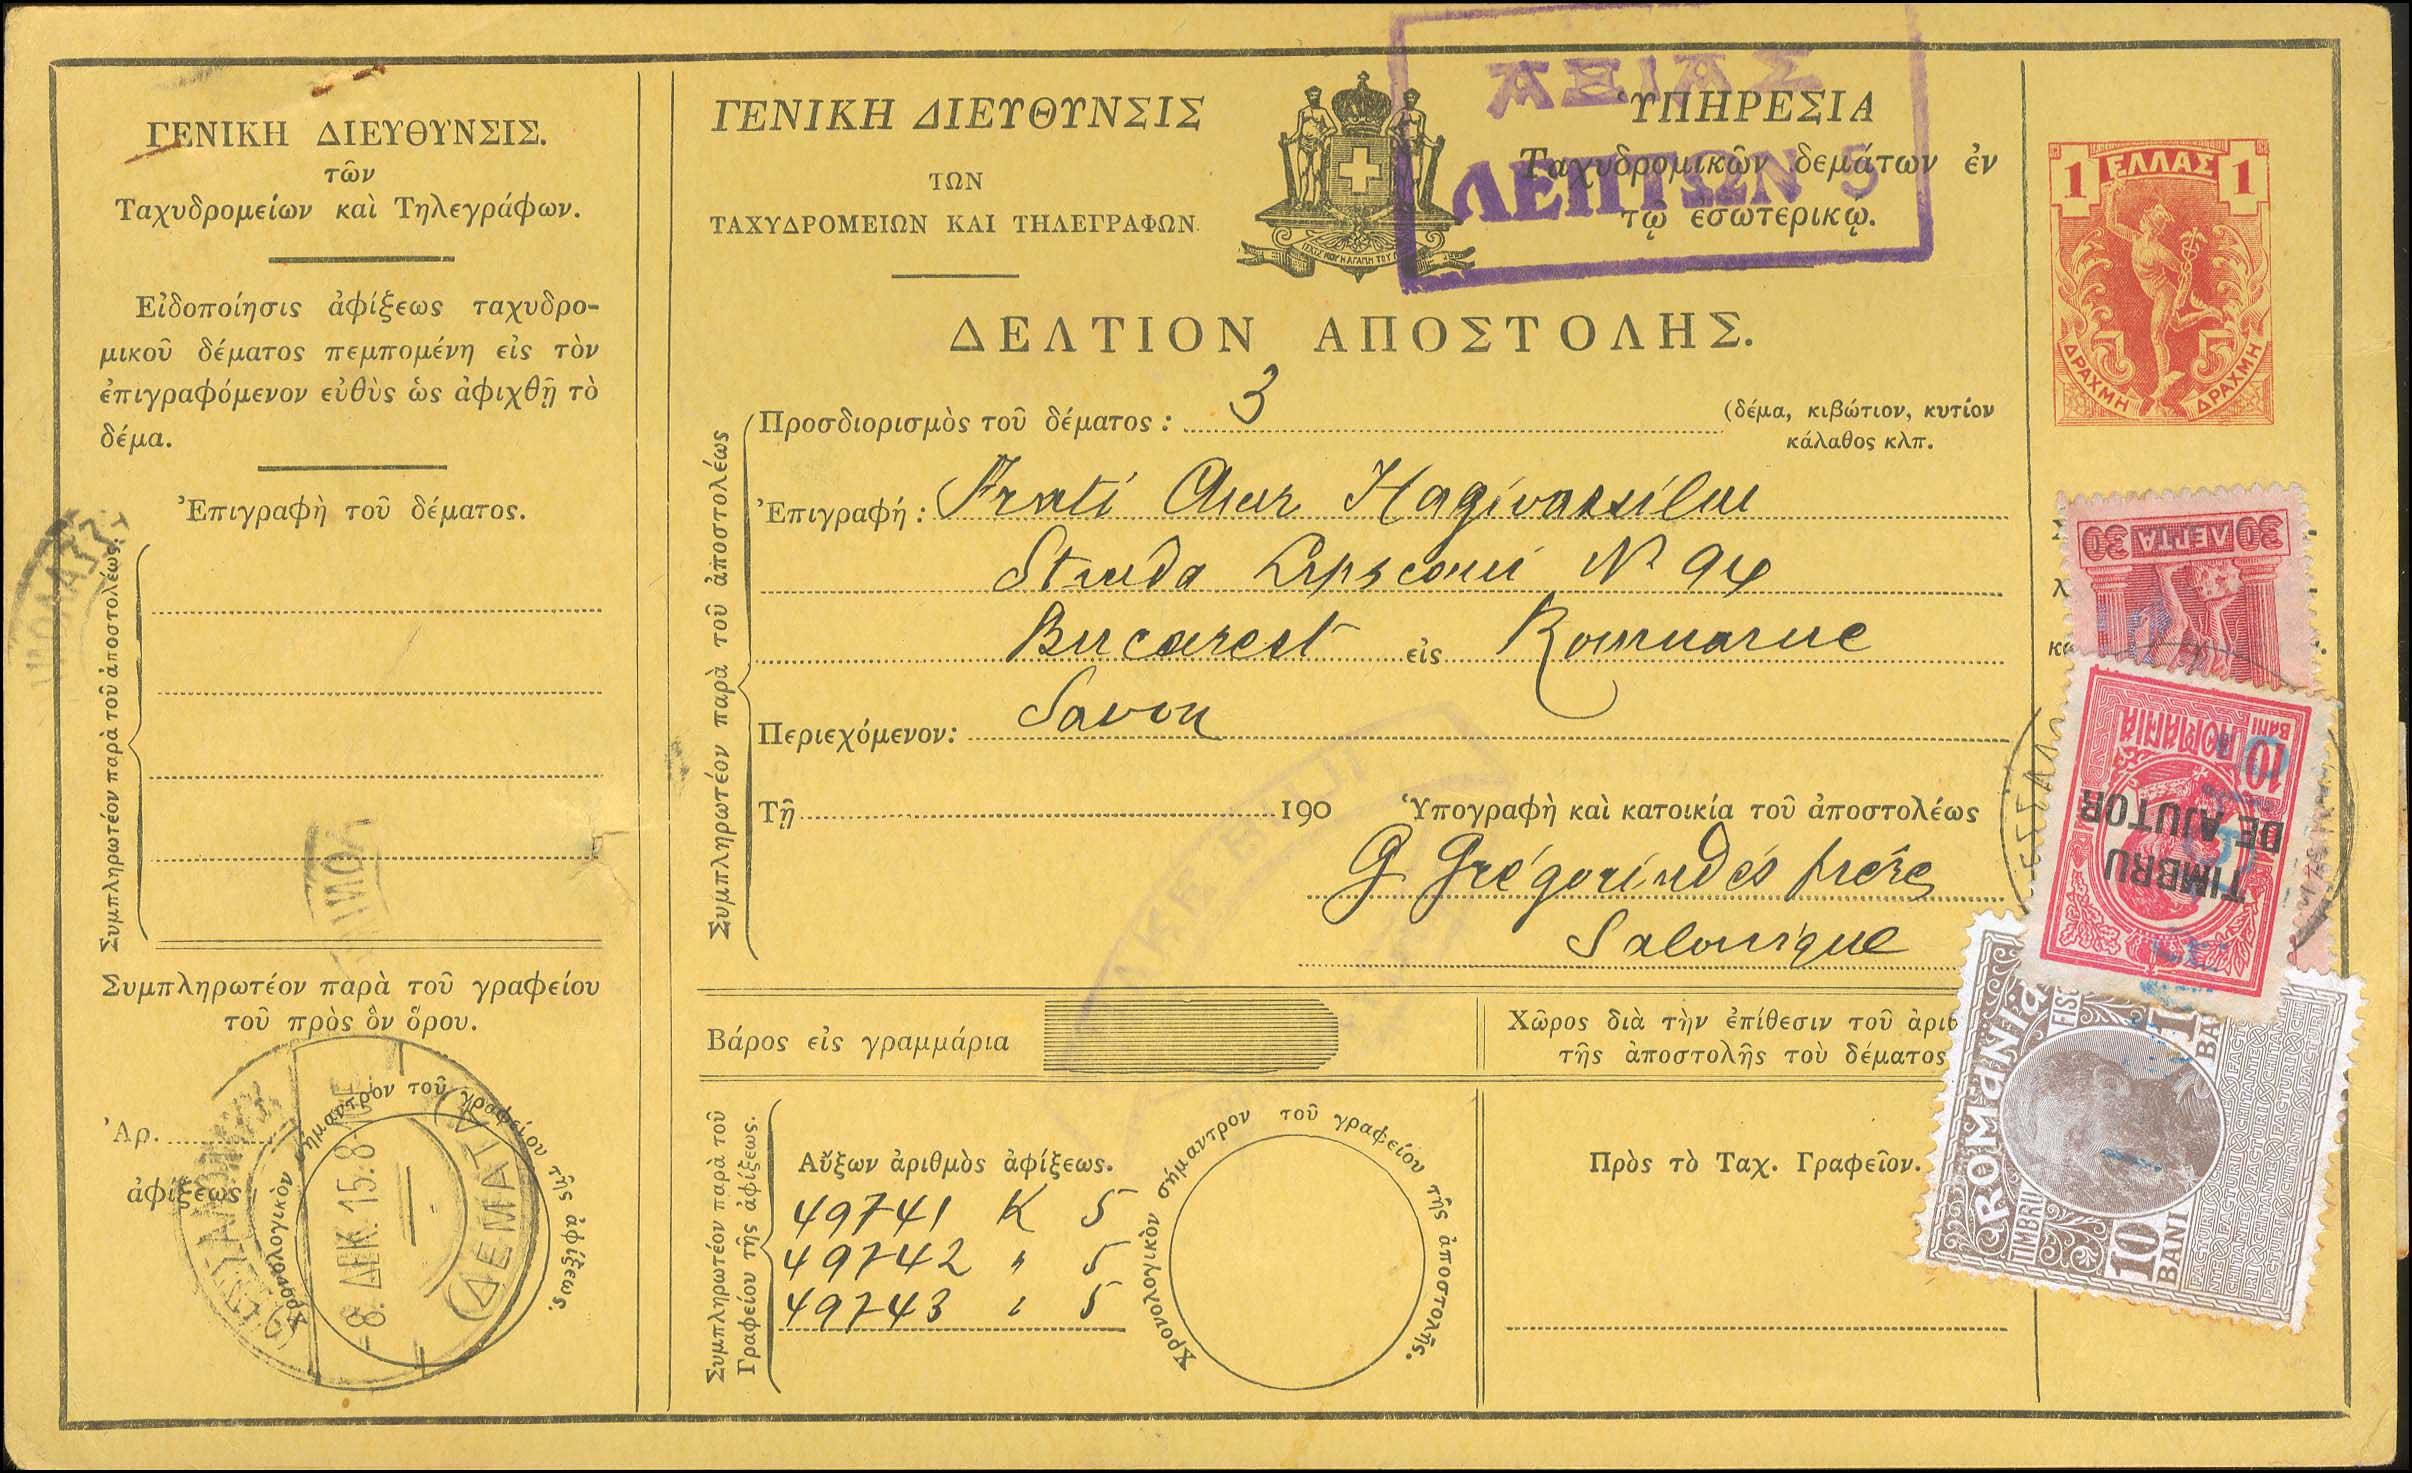 ΓΕΝΙΚΗ ΔΙΕΥΘΥΝΣΙΣ.
τῶν
Ταχυδρομείων καὶ Τηλεγράφων.
Εἰδοποίησις ἀφίξεως ταχυδρο-
μικοῦ δέματος πεμπομένη εἰς τὸν
ἐπιγραφόμενον εὐθὺς ὡς ἀφιχθῇ τὸ
δέμα.
Ἐπιγραφὴ τοῦ δέματος.
Συμπληρωτέον παρὰ τοῦ ἀποστολέως.
Συμπληρωτέον παρὰ τοῦ γραφείου
τοῦ πρὸς ὃν ὅρου.
Ἀρ.
ἀφίξεως
Χρονολογικὸν σήμαντρον τοῦ γραφείου τῆς ἀφίξεως.
-8. ΔΕΚ. 15. 8
ΔΕΜΑΤΑ
ΓΕΝΙΚΗ ΔΙΕΥΘΥΝΣΙΣ
ΤΩΝ
ΤΑΧΥΔΡΟΜΕΙΩΝ ΚΑΙ ΤΗΛΕΓΡΑΦΩΝ.
ΑΞΙΑΣ
ΛΕΠΤΩΝ 5
ὙΠΗΡΕΣΙΑ
Ταχυδρομικῶν δεμάτων ἐν
τῷ ἐσωτερικῷ.
ΔΕΛΤΙΟΝ ΑΠΟΣΤΟΛΗΣ.
Συμπληρωτέον παρὰ τοῦ ἀποστολέως
Προσδιορισμὸς τοῦ δέματος : 3 (δέμα, κιβώτιον, κυτίον
κάλαθος κλπ.
Ἐπιγραφή : Frati Hagivassiliu
Strada Lipscani No 94
Bucarest εἰς Roumanie
Περιεχόμενον: Savon
Τῇ 190 Ὑπογραφὴ καὶ κατοικία τοῦ ἀποστολέως
G Grégoriadés frère
Salonique
Βάρος εἰς γραμμάρια
Χῶρος διὰ τὴν ἐπίθεσιν τοῦ ἀριθ
τῆς ἀποστολῆς τοὺ δέματος
Συμπληρωτέον παρὰ τοῦ
Γραφείου τῆς ἀφίξεως.
Αὔξων ἀριθμὸς ἀφίξεως.
49741 K 5
49742 " 5
49743 " 5
Χρονολογικὸν σήμαντρον τοῦ γραφείου τῆς ἀποστολῆς.
Πρὸς τὸ Ταχ. Γραφεῖον.
1 ΕΛΛΑΣ 1
ΔΡΑΧΜΗ ΔΡΑΧΜΗ
30 ΛΕΠΤΑ 30
10 BANI ROMANIA
TIMBRU
DE AJUTOR
ROMANIA
TIMBRU FIS
10 BANI